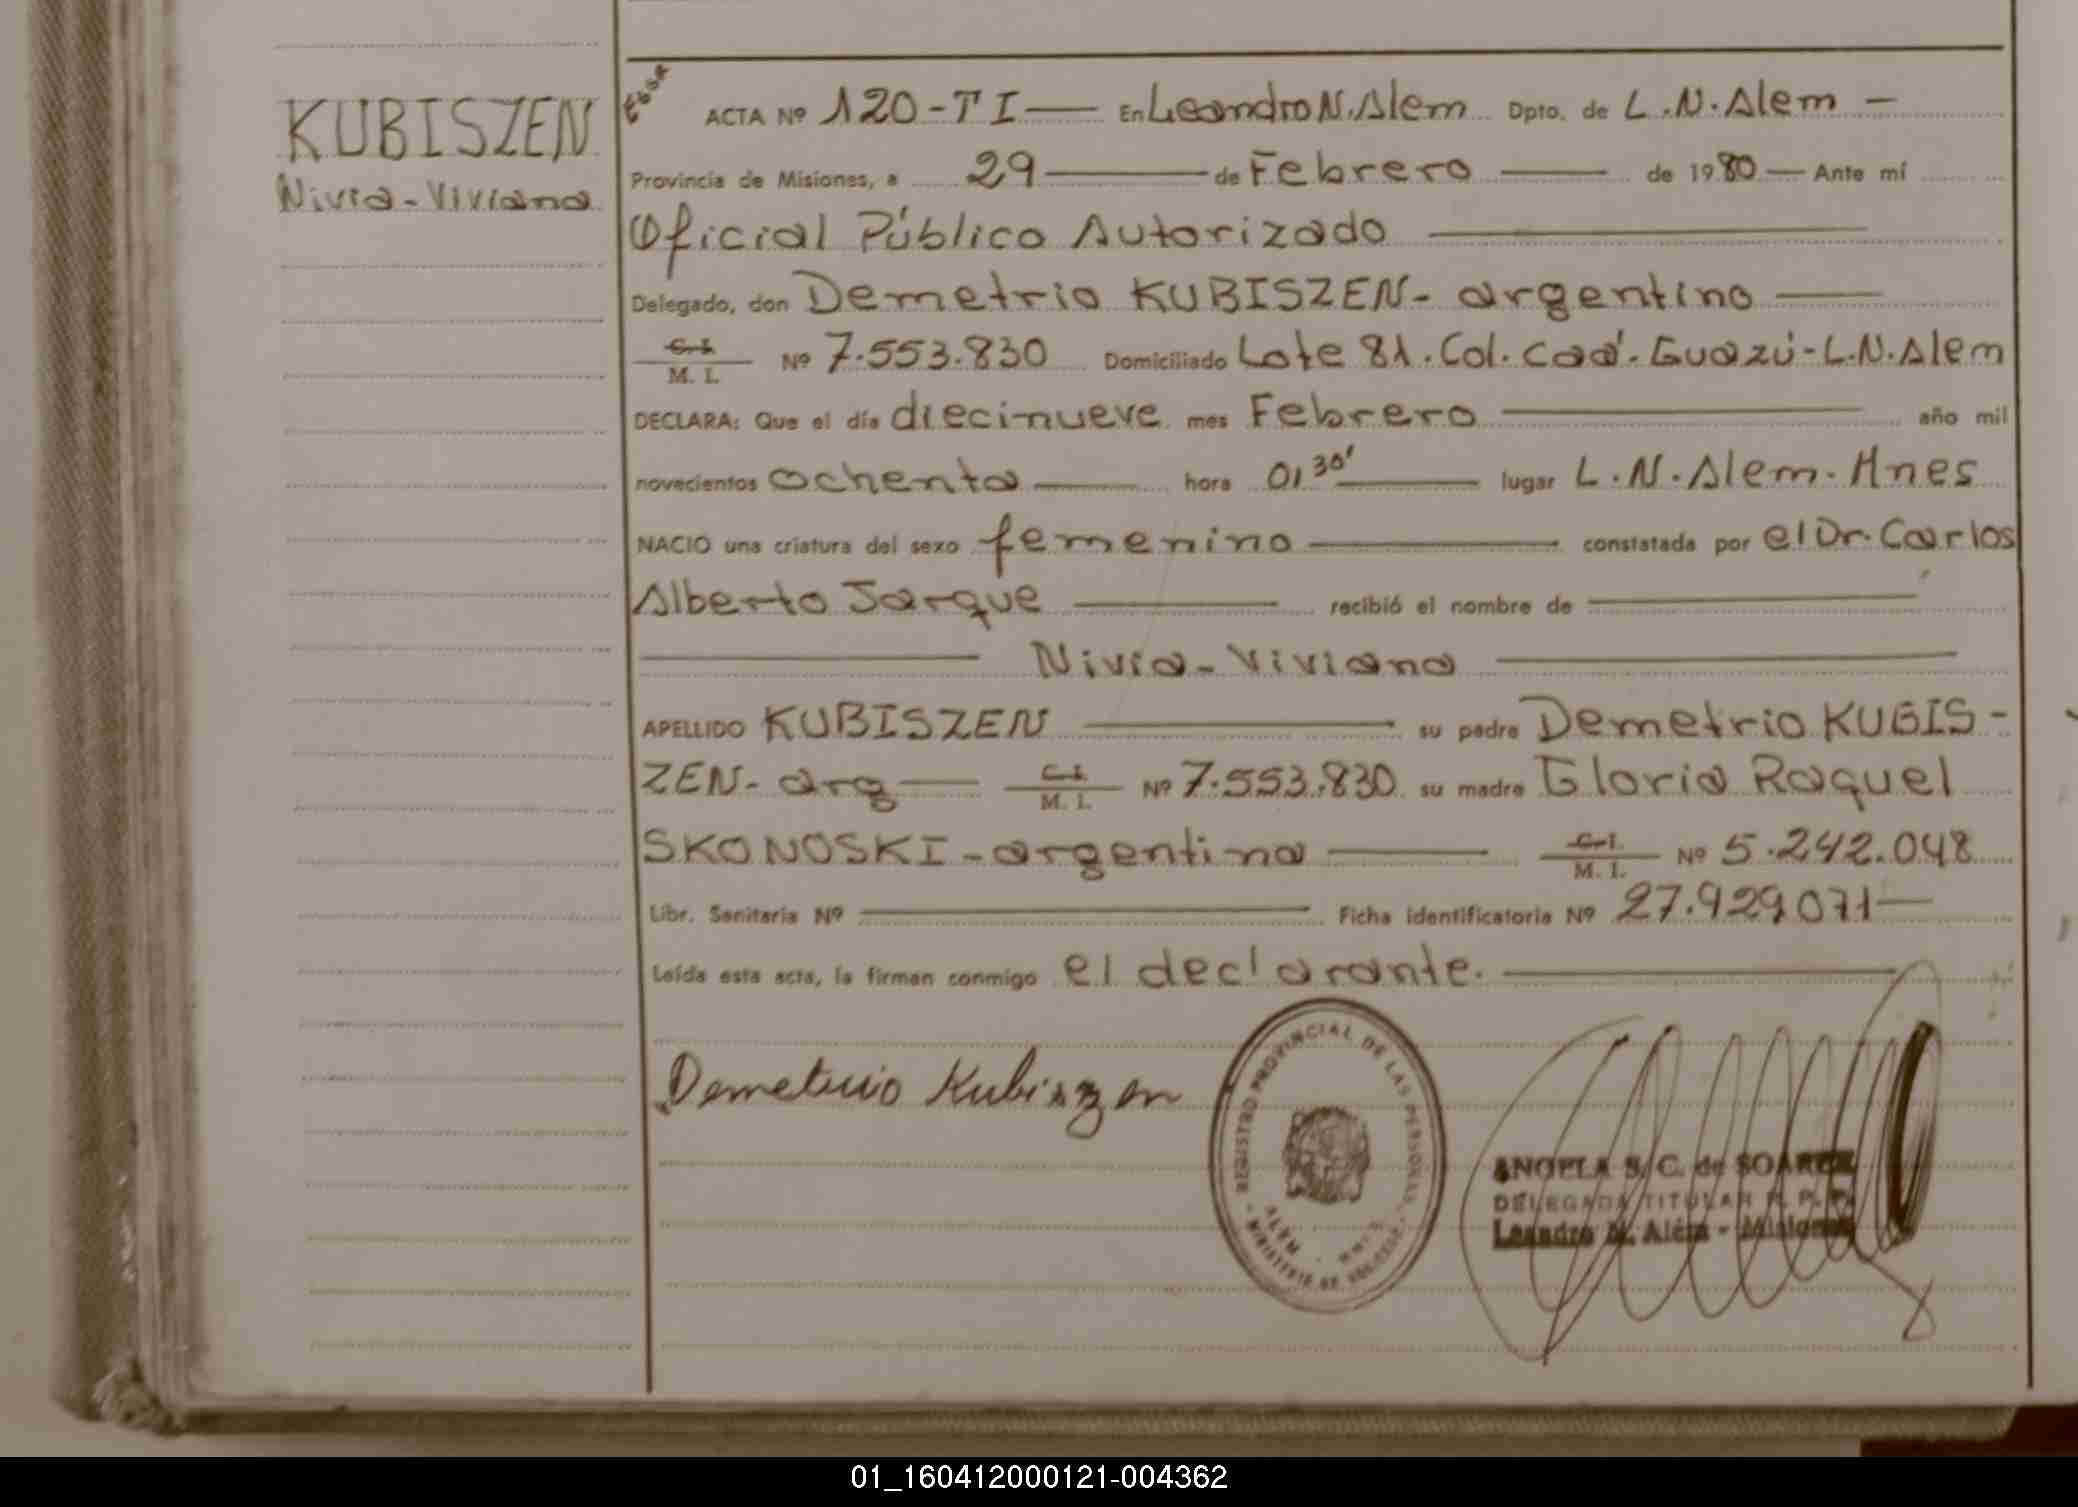 KUBISZEN
Nivia-Viviana
ACTA Nº 120-T I — En Leandro N. Alem Dpto. de L.N. Alem —
Provincia de Misiones, a 29 — de Febrero — de 1980 — Ante mí
Oficial Público Autorizado —
Delegado, don Demetrio KUBISZEN - argentino —
C. I. M. I. Nº 7.553.830 Domiciliado Lote 81. Col. Caá. Guazú - L.N. Alem
DECLARA: Que el día diecinueve mes Febrero — año mil
novecientos ochenta — hora 01,30' — lugar L.N. Alem. Mnes
NACIO una criatura del sexo femenino — constatada por el Dr. Carlos
Alberto Jarque — recibió el nombre de —
— Nivia-Viviana —
APELLIDO KUBISZEN — su padre Demetrio KUBIS-
ZEN - arg — C. I. M. I. Nº 7.553.830 su madre Gloria Raquel
SKONOSKI - argentina — C. I. M. I. Nº 5.242.048
Libr. Sanitaria Nº — Ficha identificatoria Nº 27.929.071 —
Leída esta acta, la firman conmigo el declarante. —
Demetrio Kubiszen
REGISTRO PROVINCIAL DE LAS PERSONAS
ALEM
MINISTERIO DE
ANGELA S. C. de SOAREZ
DELEGADA TITULAR R. P. P.
Leandro N. Alem - Misiones
01_160412000121-004362